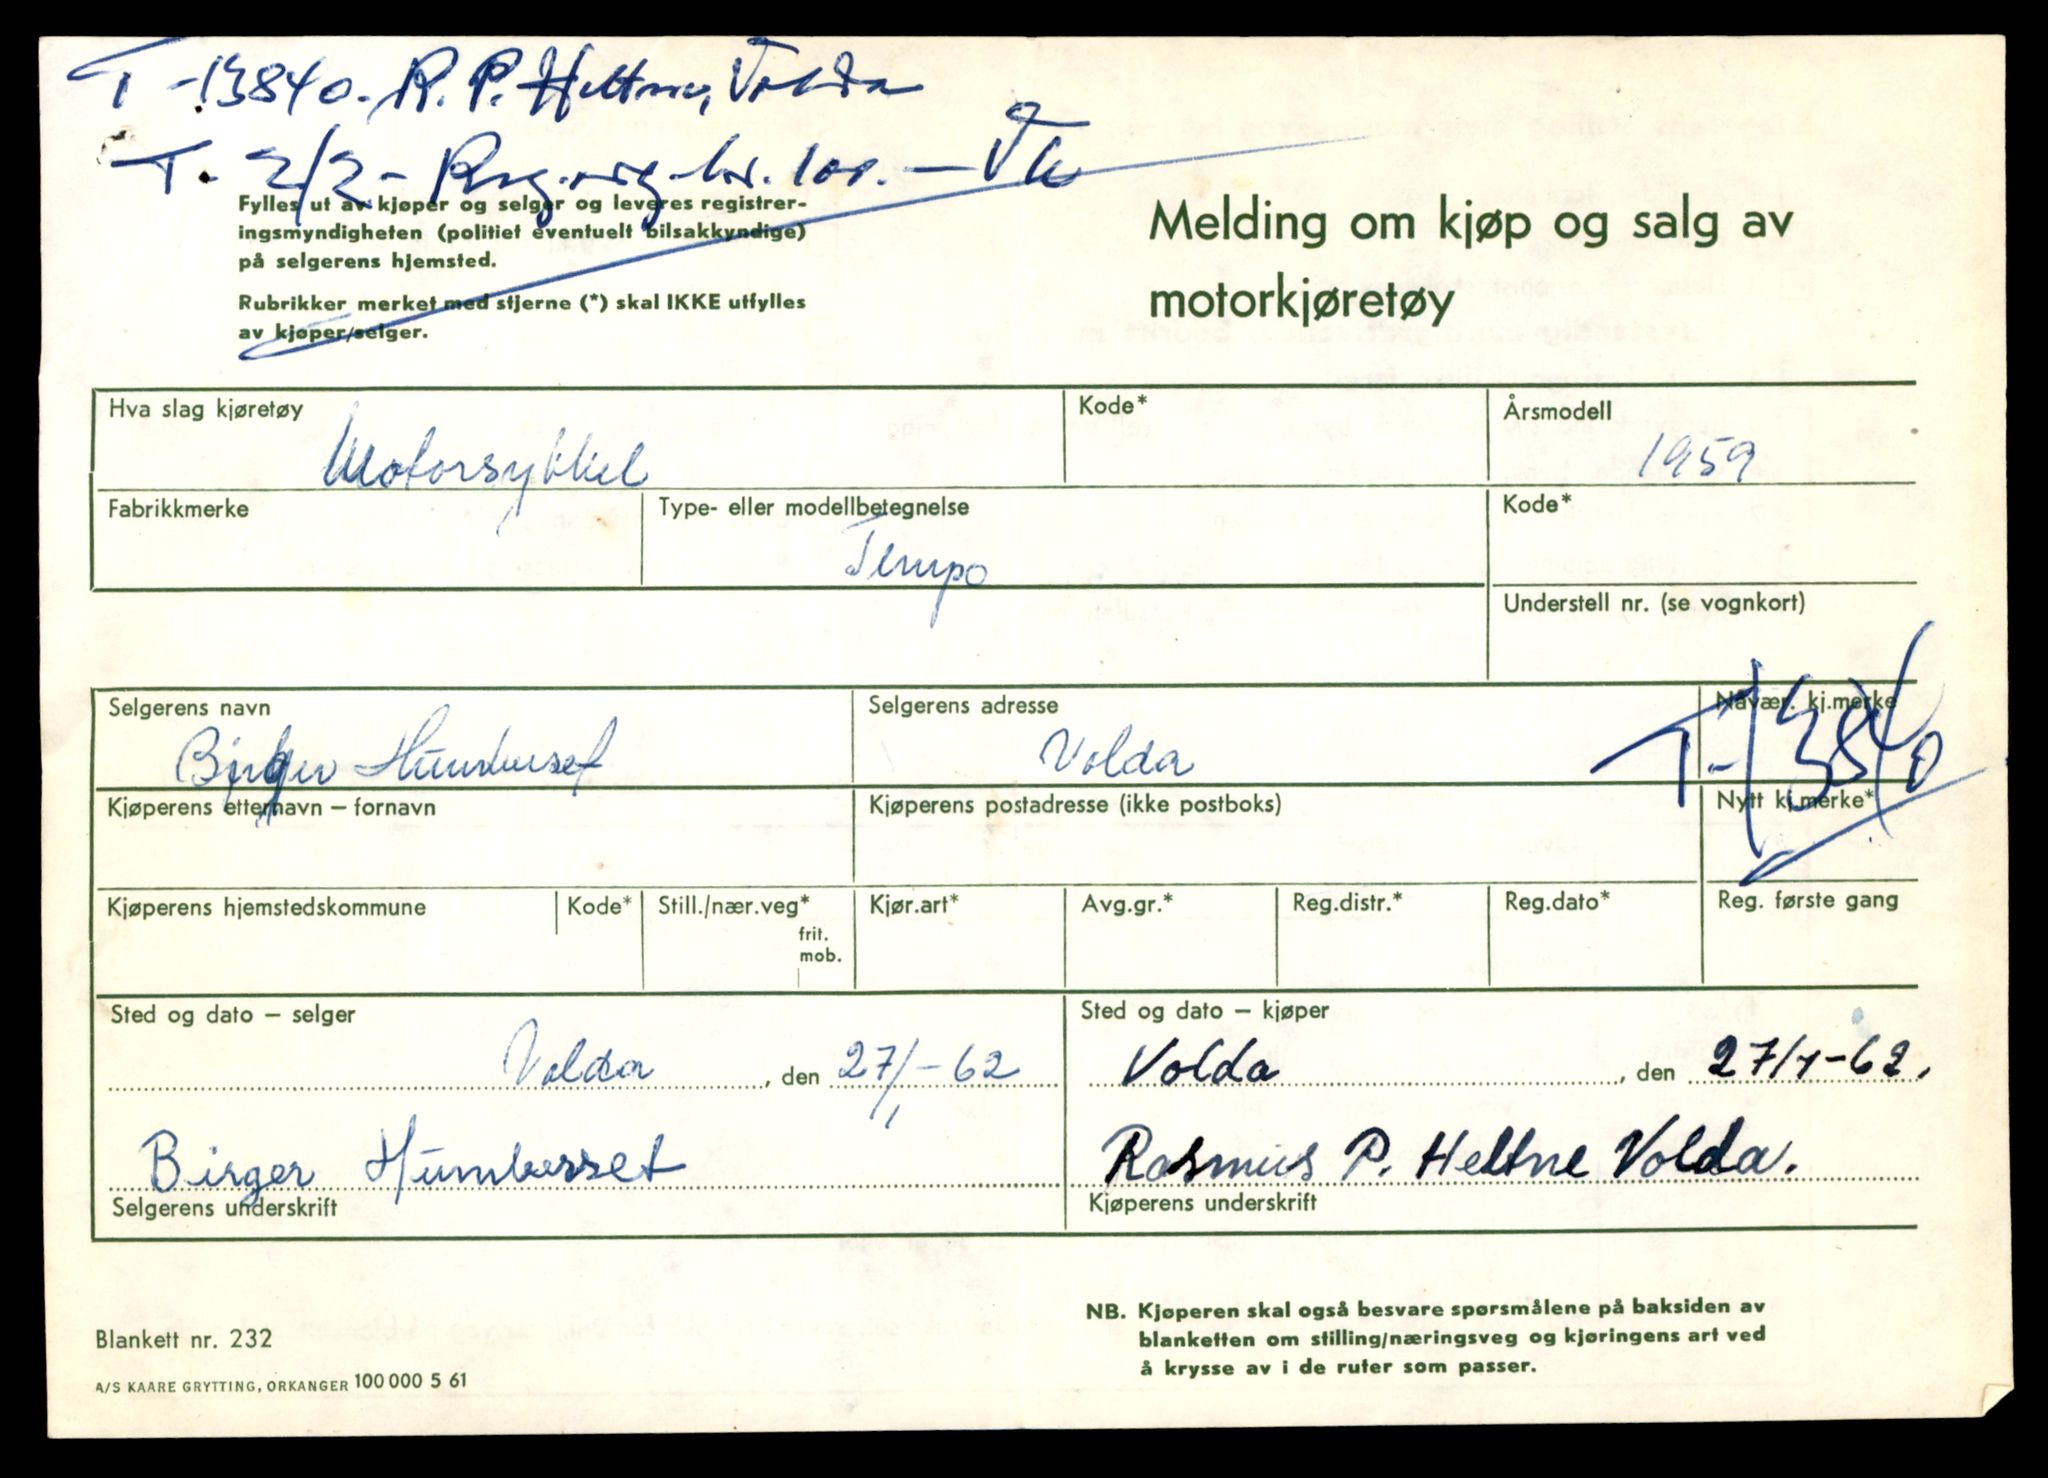 T-13840. R. P. Heltne, Volda
T. 2/2 -
Fylles ut av kjøper og selger og leveres registrer-
ingsmyndigheten (politiet eventuelt bilsakkyndige)
på selgerens hjemsted.
Rubrikker merket med stjerne (*) skal IKKE utfylles
av kjøper/selger.
Melding om kjøp og salg av
motorkjøretøy
Hva slag kjøretøy
Motorsykkel
Kode*
Årsmodell
1959
Fabrikkmerke
Type- eller modellbetegnelse
Tempo
Kode*
Understell nr. (se vognkort)
Selgerens navn
Birger Humberset
Selgerens adresse
Volda
Nåvær. kj.merke
T-13840
Kjøperens etternavn – fornavn
Kjøperens postadresse (ikke postboks)
Nytt kj.merke*
Kjøperens hjemstedskommune
Kode*
Still./nær.veg*
frit.
mob.
Kjør.art*
Avg.gr.*
Reg.distr.*
Reg.dato*
Reg. første gang
Sted og dato – selger
Volda, den 27/1-62
Birger Humberset
Selgerens underskrift
Sted og dato – kjøper
Volda, den 27/1-62.
Rasmus P. Heltne Volda.
Kjøperens underskrift
Blankett nr. 232
A/S KAARE GRYTTING, ORKANGER 100 000 5 61
NB. Kjøperen skal også besvare spørsmålene på baksiden av
blanketten om stilling/næringsveg og kjøringens art ved
å krysse av i de ruter som passer.